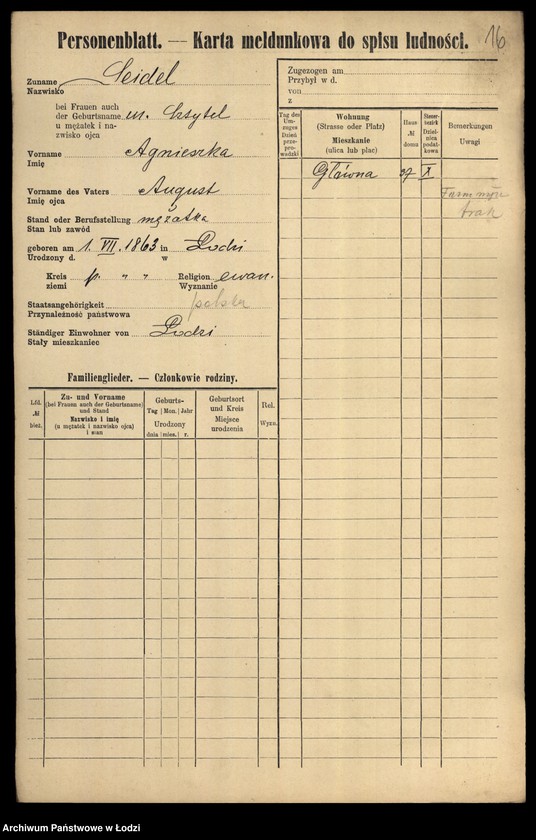 Personenblatt. — Karta meldunkowa do spisu ludności. 16
Zuname Seidel
Nazwisko
bei Frauen auch
der Geburtsname
u mężatek i na-
zwisko ojca
Vorname Agnieszka
Imię
Vorname des Vaters August
Imię ojca
Stand oder Berufsstellung mężatka
Stan lub zawód
geboren am 1. VII. 1863 in Lodzi
Urodzony d. w
Kreis p. " " Religion ewan.
ziemi Wyznanie
Staatsangehörigkeit polska
Przynależność państwowa
Ständiger Einwohner von Lodzi
Stały mieszkaniec
Familienglieder. — Członkowie rodziny.
Lfd. № bież.
Zu- und Vorname
(bei Frauen auch der Geburtsname)
und Stand
Nazwisko i imię
(u mężatek i nazwisko ojca)
i stan
Geburts-
Tag Mon. Jahr
Urodzony
dnia mies. r.
Geburtsort
und Kreis
Miejsce
urodzenia
Rel.
Wyzn.
Zugezogen am
Przybył w d.
von
z
Tag des
Um-
zuges
Dzień
prze-
pro-
wadzki
Wohnung
(Strasse oder Platz)
Mieszkanie
(ulica lub plac)
Haus-
№
domu
Steuer-
bezirk
Dziel-
nica
podat-
kowa
Bemerkungen
Uwagi
Główna 37 X
brak
Archiwum Państwowe w Łodzi